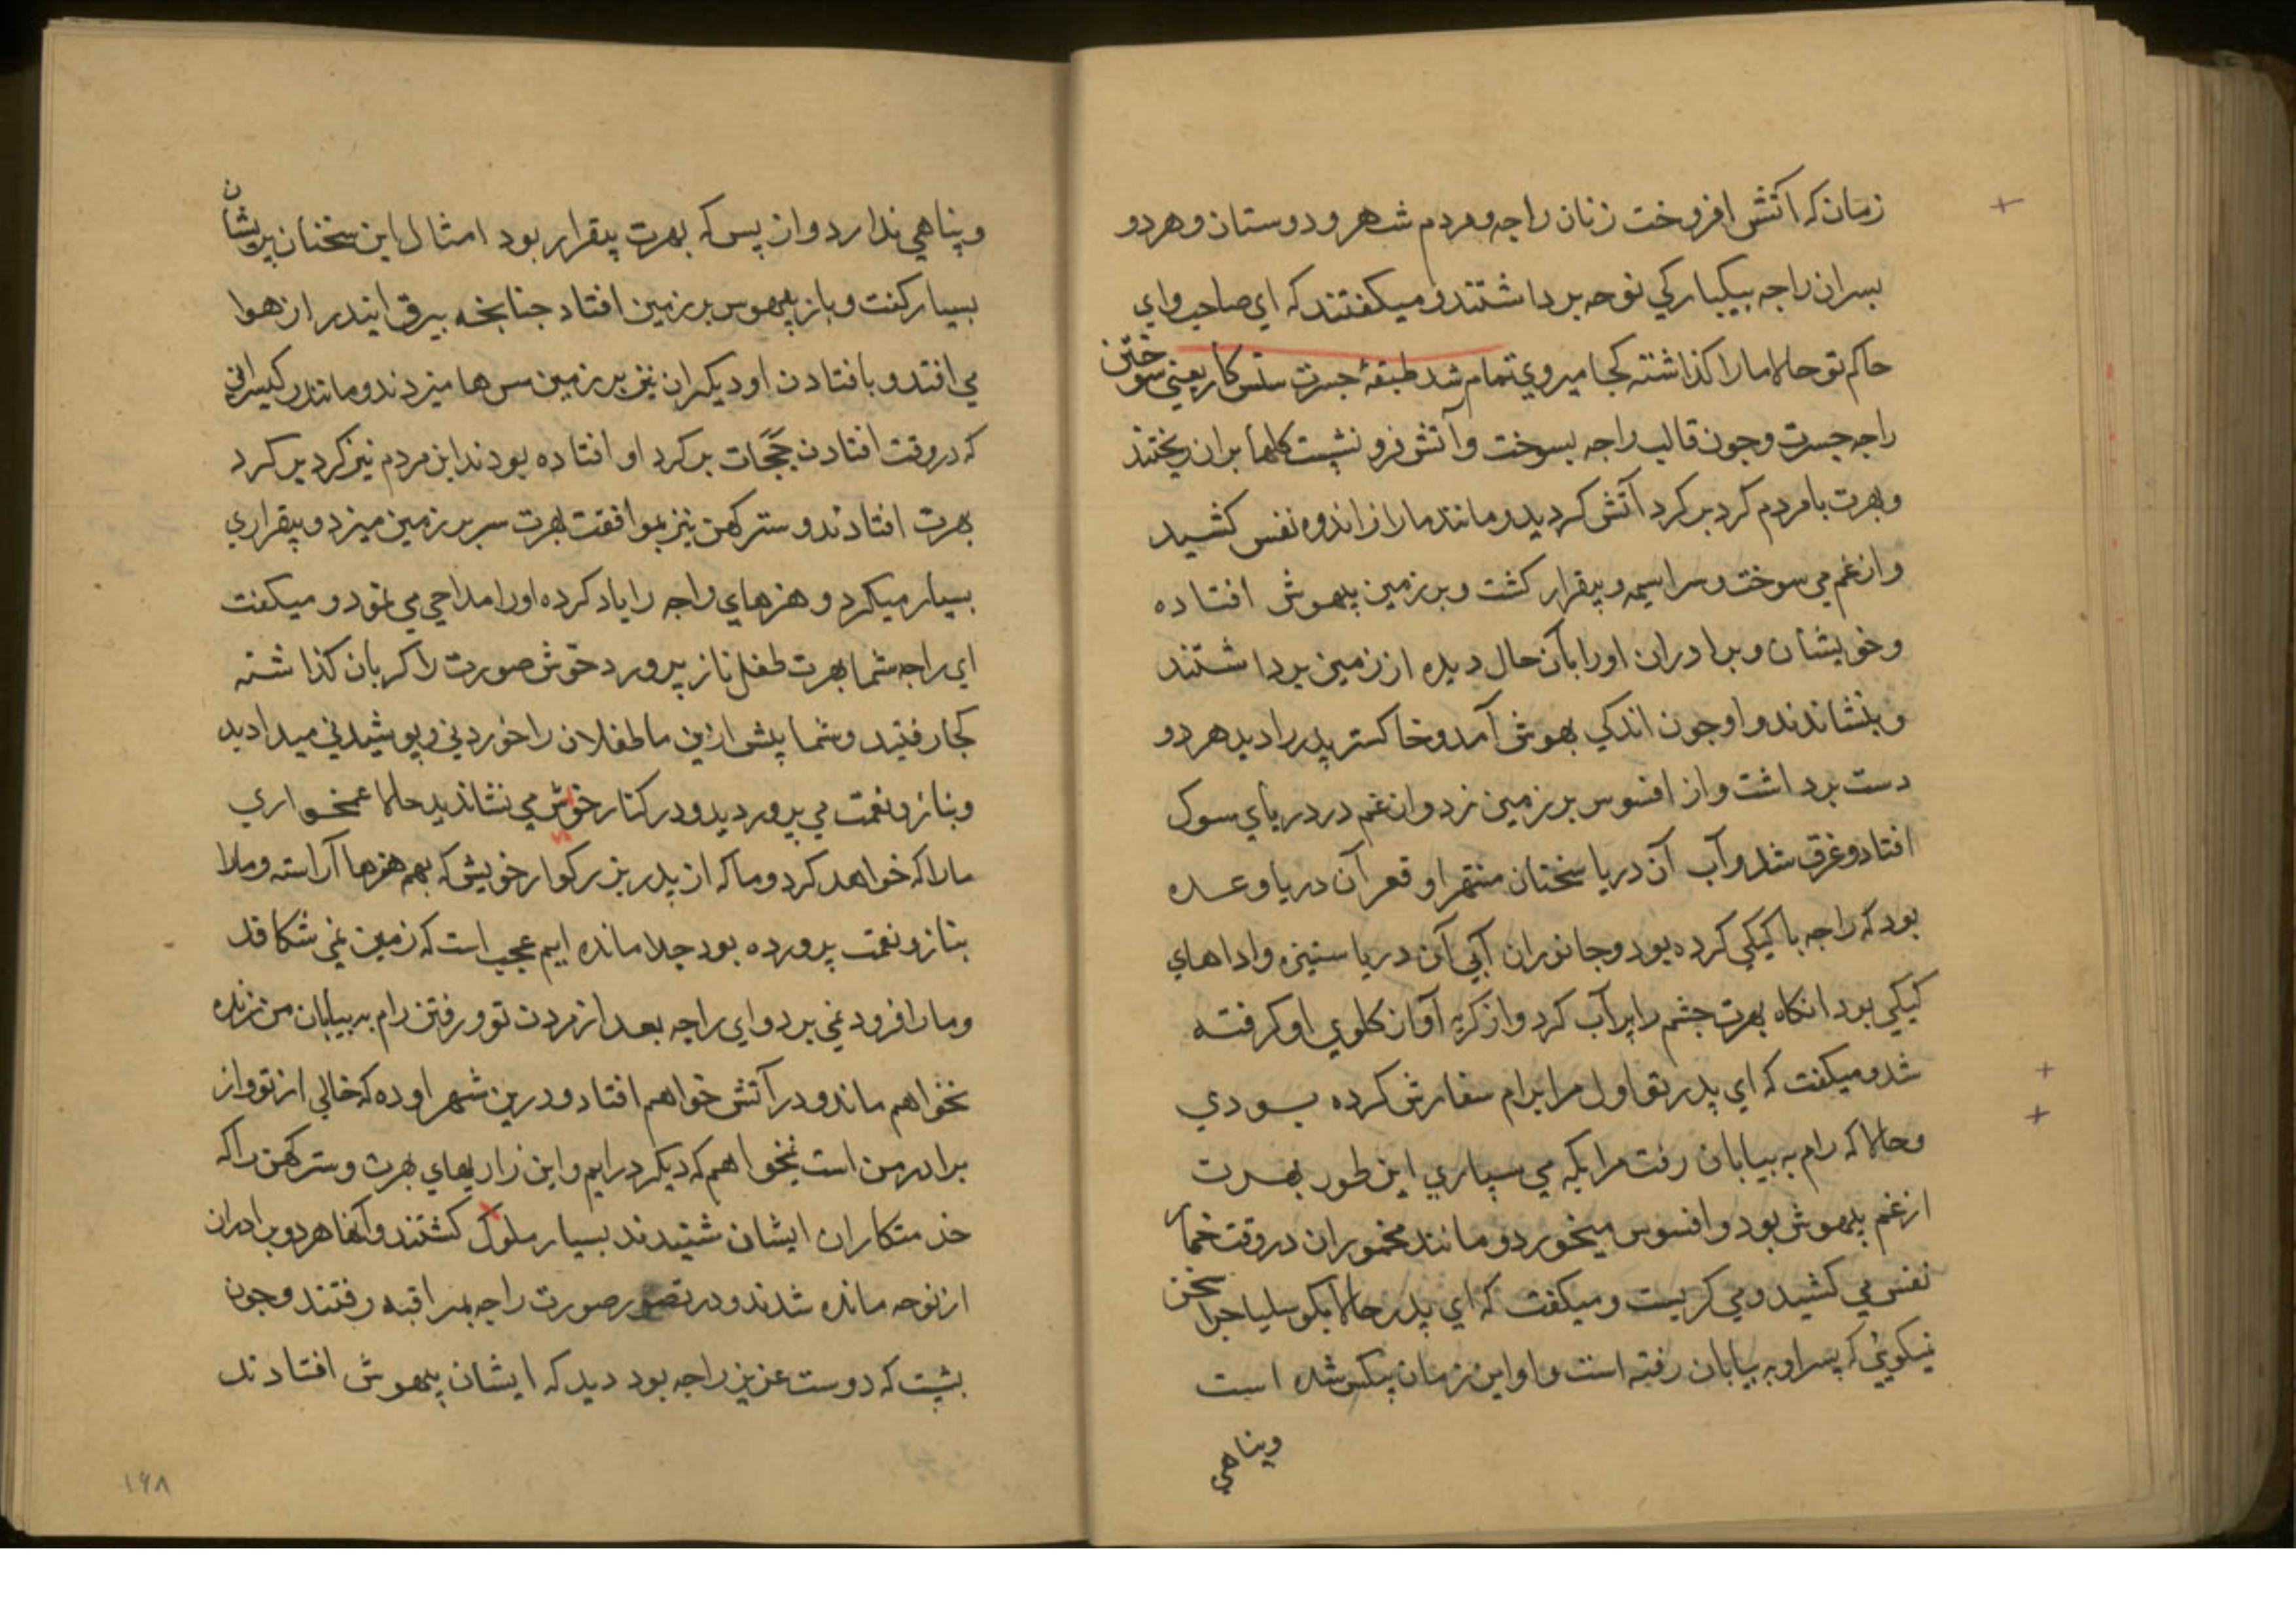 زمان که آتش افروخت زنان راجه و مردم شهر و دوستان و هردو
بسران راجه بیکبارکي نوحه برداشتند و میکفتند که اي صاحب واي
حاکم تو حالا ما را کذاشته کجا میروي تمام شد طبقهٔ جسرت ستس کار یعني سوختن
راجه جسرت وجون قالب راجه بسوخت و آتش فرو نشست کلها بران ریختند
و بهرت با مردم کرد بر کرد آتش کردید و مانند مار از اندوه نفس کشید
و از غم مي سوخت و سراسیمه و بیقرار کشت و بر زمین بیهوش افتاده
و خویشان و برادران او را بآن حال دیده از زمین برداشتند
و بنشاندند و او جون اندکي بهوش آمد و خاکستر پدر را دید هر دو
دست برداشت و از افسوس بر زمین زد و از غم در دریاي سوک
افتاد و غرق شد و آب آن دریا سخنان منتهر او قعر آن دریا وعده
بود که راجه با کیکي کرده بود و جانوران آبي آن دریا ستیزه و اداهاي
کیکي بود انکاه بهرت جشم را پر آب کرد و از کریه آواز کلوي او کرفته
شد و میکفت که اي پدر تو اول مرا برام سفارش کرده بودي
و حالا که رام به بیابان رفت مرا بکه مي سپاري این طور بهرت
از غم بیهوش بود و افسوس میخورد و مانند مخموران در وقت خمار
نفس مي کشید و مي کریست و میکفت که اي پدر حالا بکوسلیا جرا سخن
نمیکویي که پسر او به بیابان رفته است و او این زمان بیکس شده است
وپناهي
وپناهي ندارد و از پس که بهرت بیقرار بود امثال این سخنان پریشان
بسیار کفت و باز بیهوس بر زمین افتاد جنانجه بیرق ایندر از هوا
مي افتد و با افتادن او دیکران نیز بر زمین سرها میزدند و مانند رکیسران
که در وقت افتادن ججات بر کرد او افتاده بودند این مردم نیز کرد بر کرد
بهرت افتادند و سترکهن نیز بموافقت بهرت سر بر زمین میزد و بیقراري
بسیار میکرد و هنرهاي راجه را یاد کرده او را مداحي مي نمود و میکفت
اي راجه شما بهرت طفل ناز پرورد خوش صورت را کریان کذاشته
کجا رفتید و شما پیش ازین ما طفلان را خوردني و پوشیدني میدادید
و بناز و نعمت مي پروردید و در کنار خوش مي نشاندید حالا غمخواري
ما را که خواهد کرد و ما که از پدر بزرکوار خویش که بهم هنرها آراسته و ما را
بناز و نعمت پرورده بود جدا مانده ایم عجب است که زمین نمي شکافد
و ما را فرود نمي برد و اي راجه بعد از مردن تو و رفتن رام به بیابان من زنده
نخواهم ماند و در آتش خواهم افتاد و درین شهر اوده که خالي از تو و از
برادر من است نخواهم که دیکر درایم و این زاریهاي بهرت و سترکهن را که
خدمتکاران ایشان شنیدند بسیار ملوک کشتند و آنها هر دو برادران
از نوحه مانده شدند و در تصور صورت راجه بمراقبه رفتند و جون
بشست که دوست عزیز راجه بود دید که ایشان بیهوش افتادند
۱۶۸